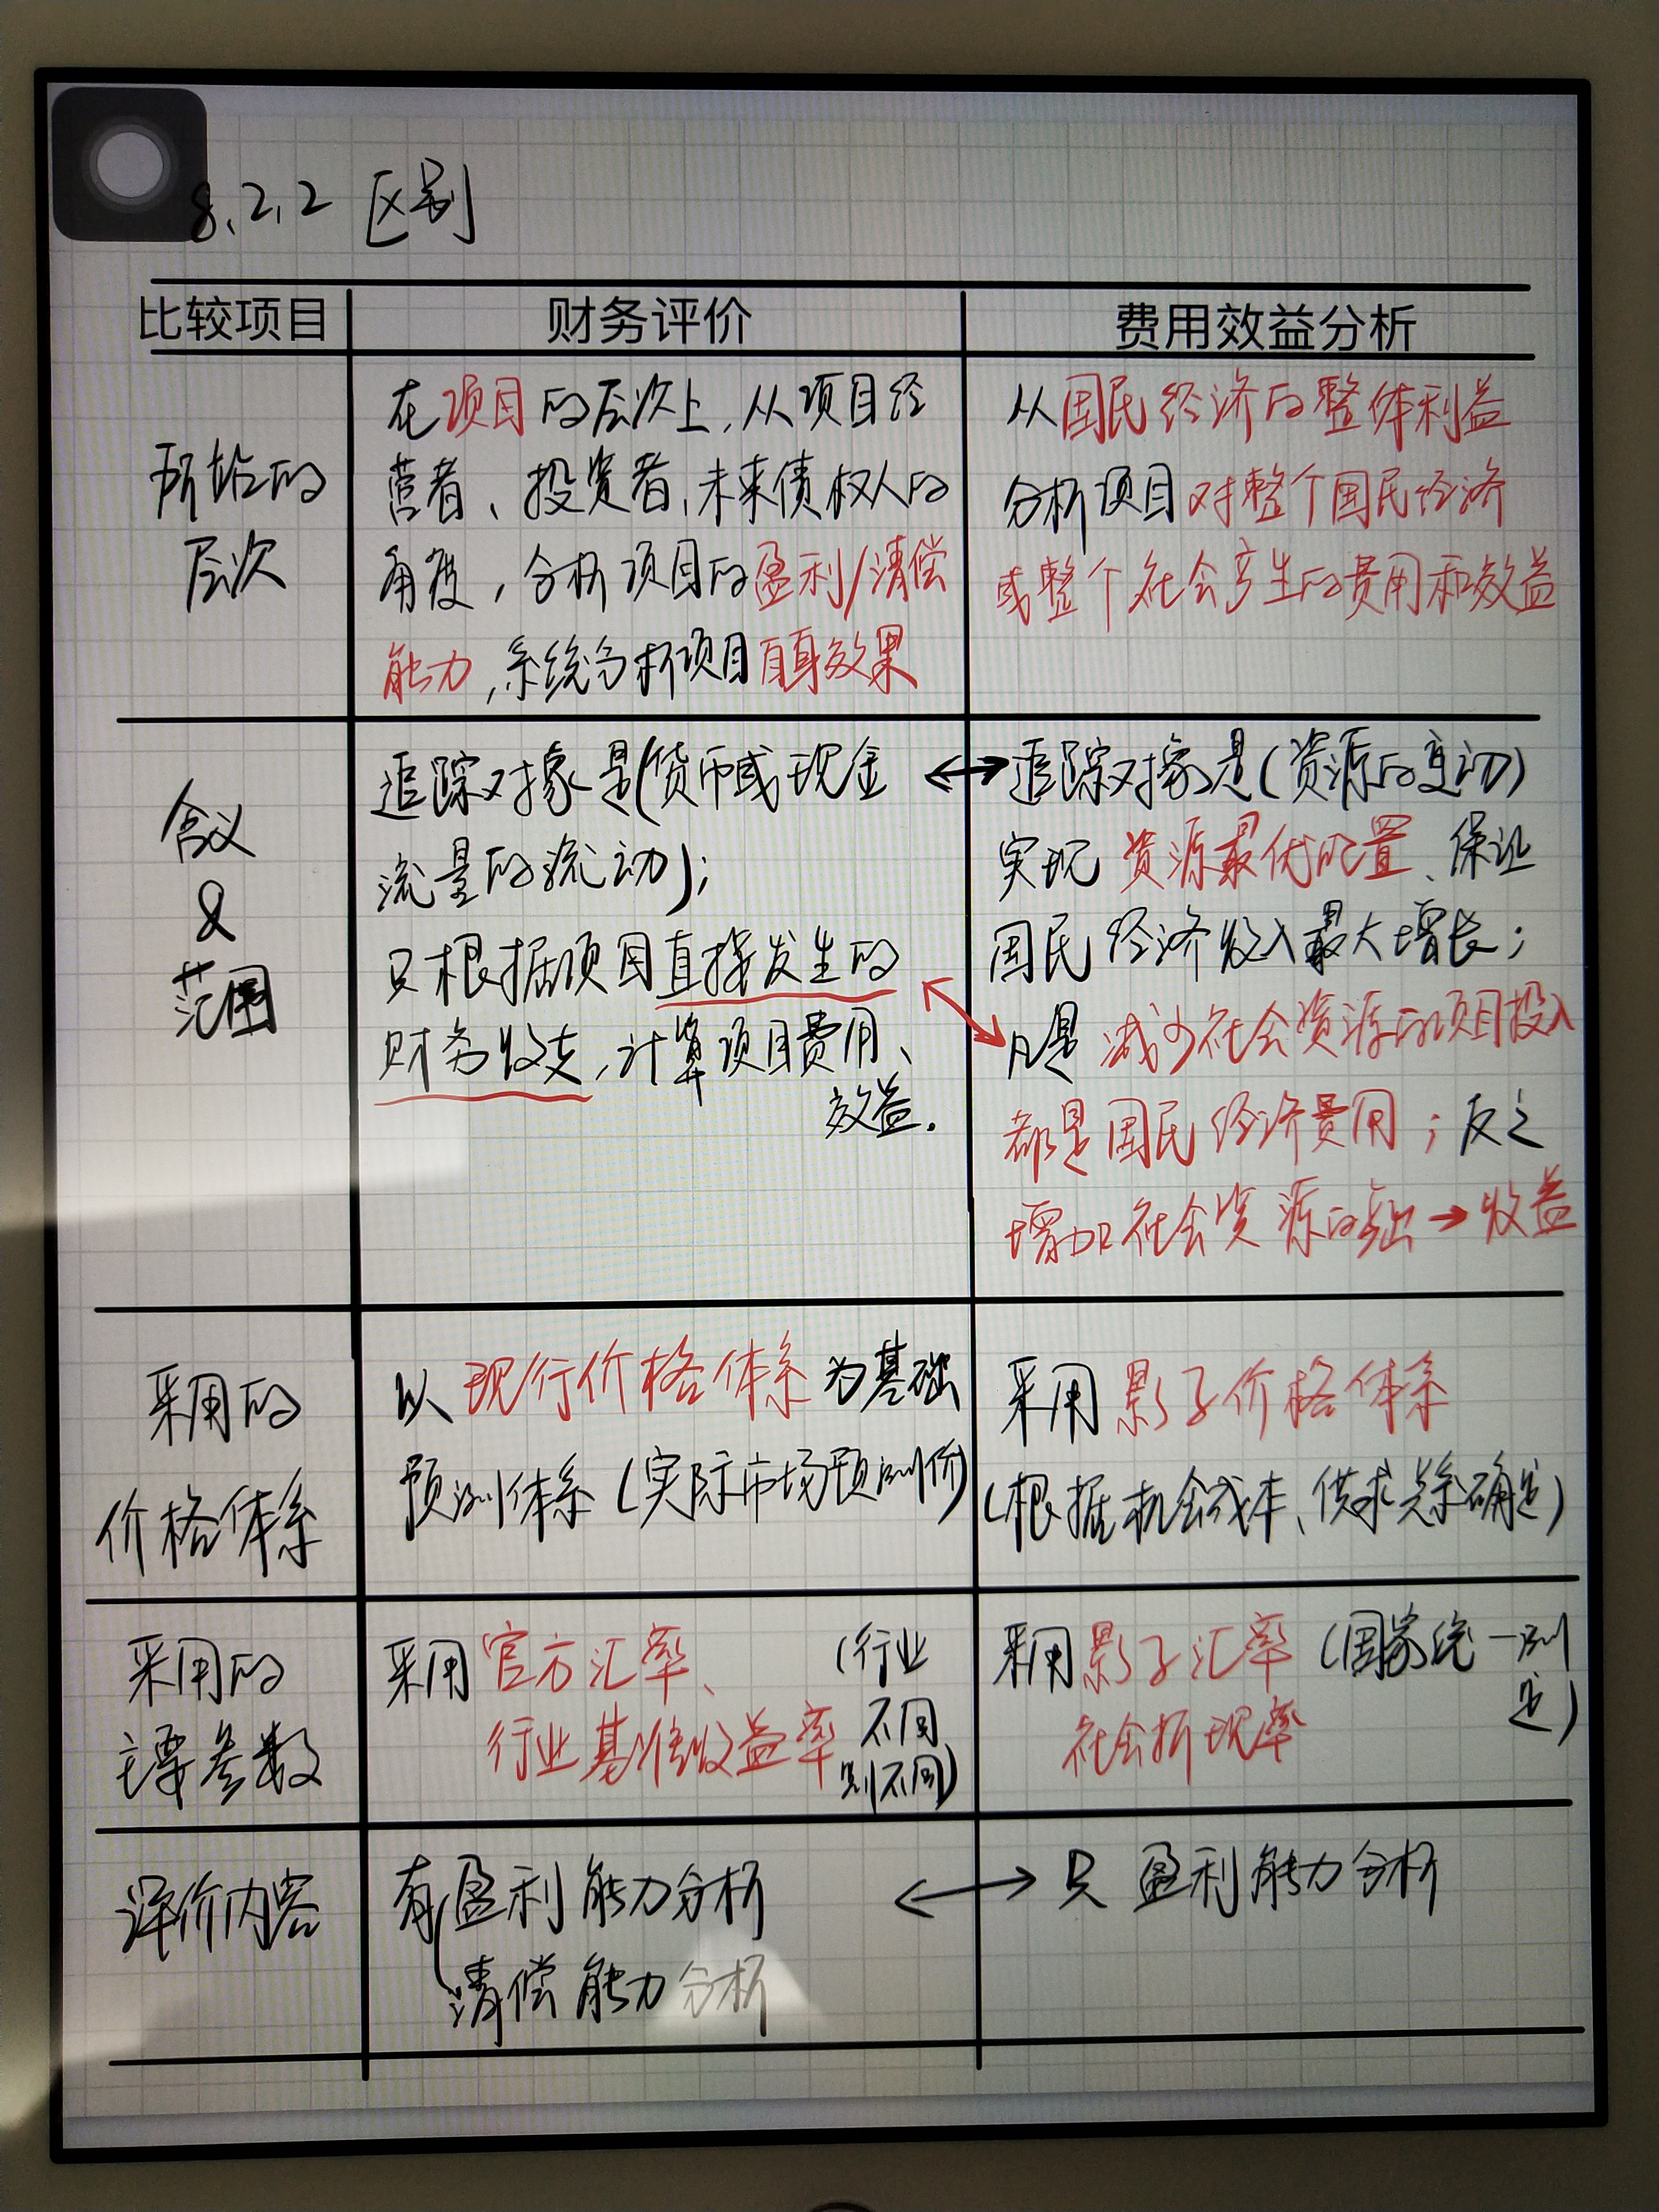 8.2.2 区别
比较项目 财务评价 费用效益分析
所站的
层次
在项目的层次上,从项目经
营者、投资者,未来债权人的
角度,分析项目的盈利/清偿
能力,系统分析项目自身效果
从国民经济的整体利益
分析项目对整个国民经济
或整个社会产生的费用和效益
含义
&
范围
追踪对象是(货币或现金
流量的流动);
只根据项目直接发生的
财务收支,计算项目费用、
效益.
追踪对象是(资源的变动)
实现资源最优配置、保证
国民经济收入最大增长;
凡是减少社会资源的项目投入
都是国民经济费用;反之
增加社会资源的产出→收益
采用的
价格体系
以现行价格体系为基础
预测体系(实际市场预测价)
采用影子价格体系
(根据机会成本、供求关系确定)
采用的
主要参数
采用官方汇率、
行业基准收益率
(行业
不同
则不同)
采用影子汇率
社会折现率
(国家统一测
定)
评价内容
有盈利能力分析
清偿能力分析
只盈利能力分析